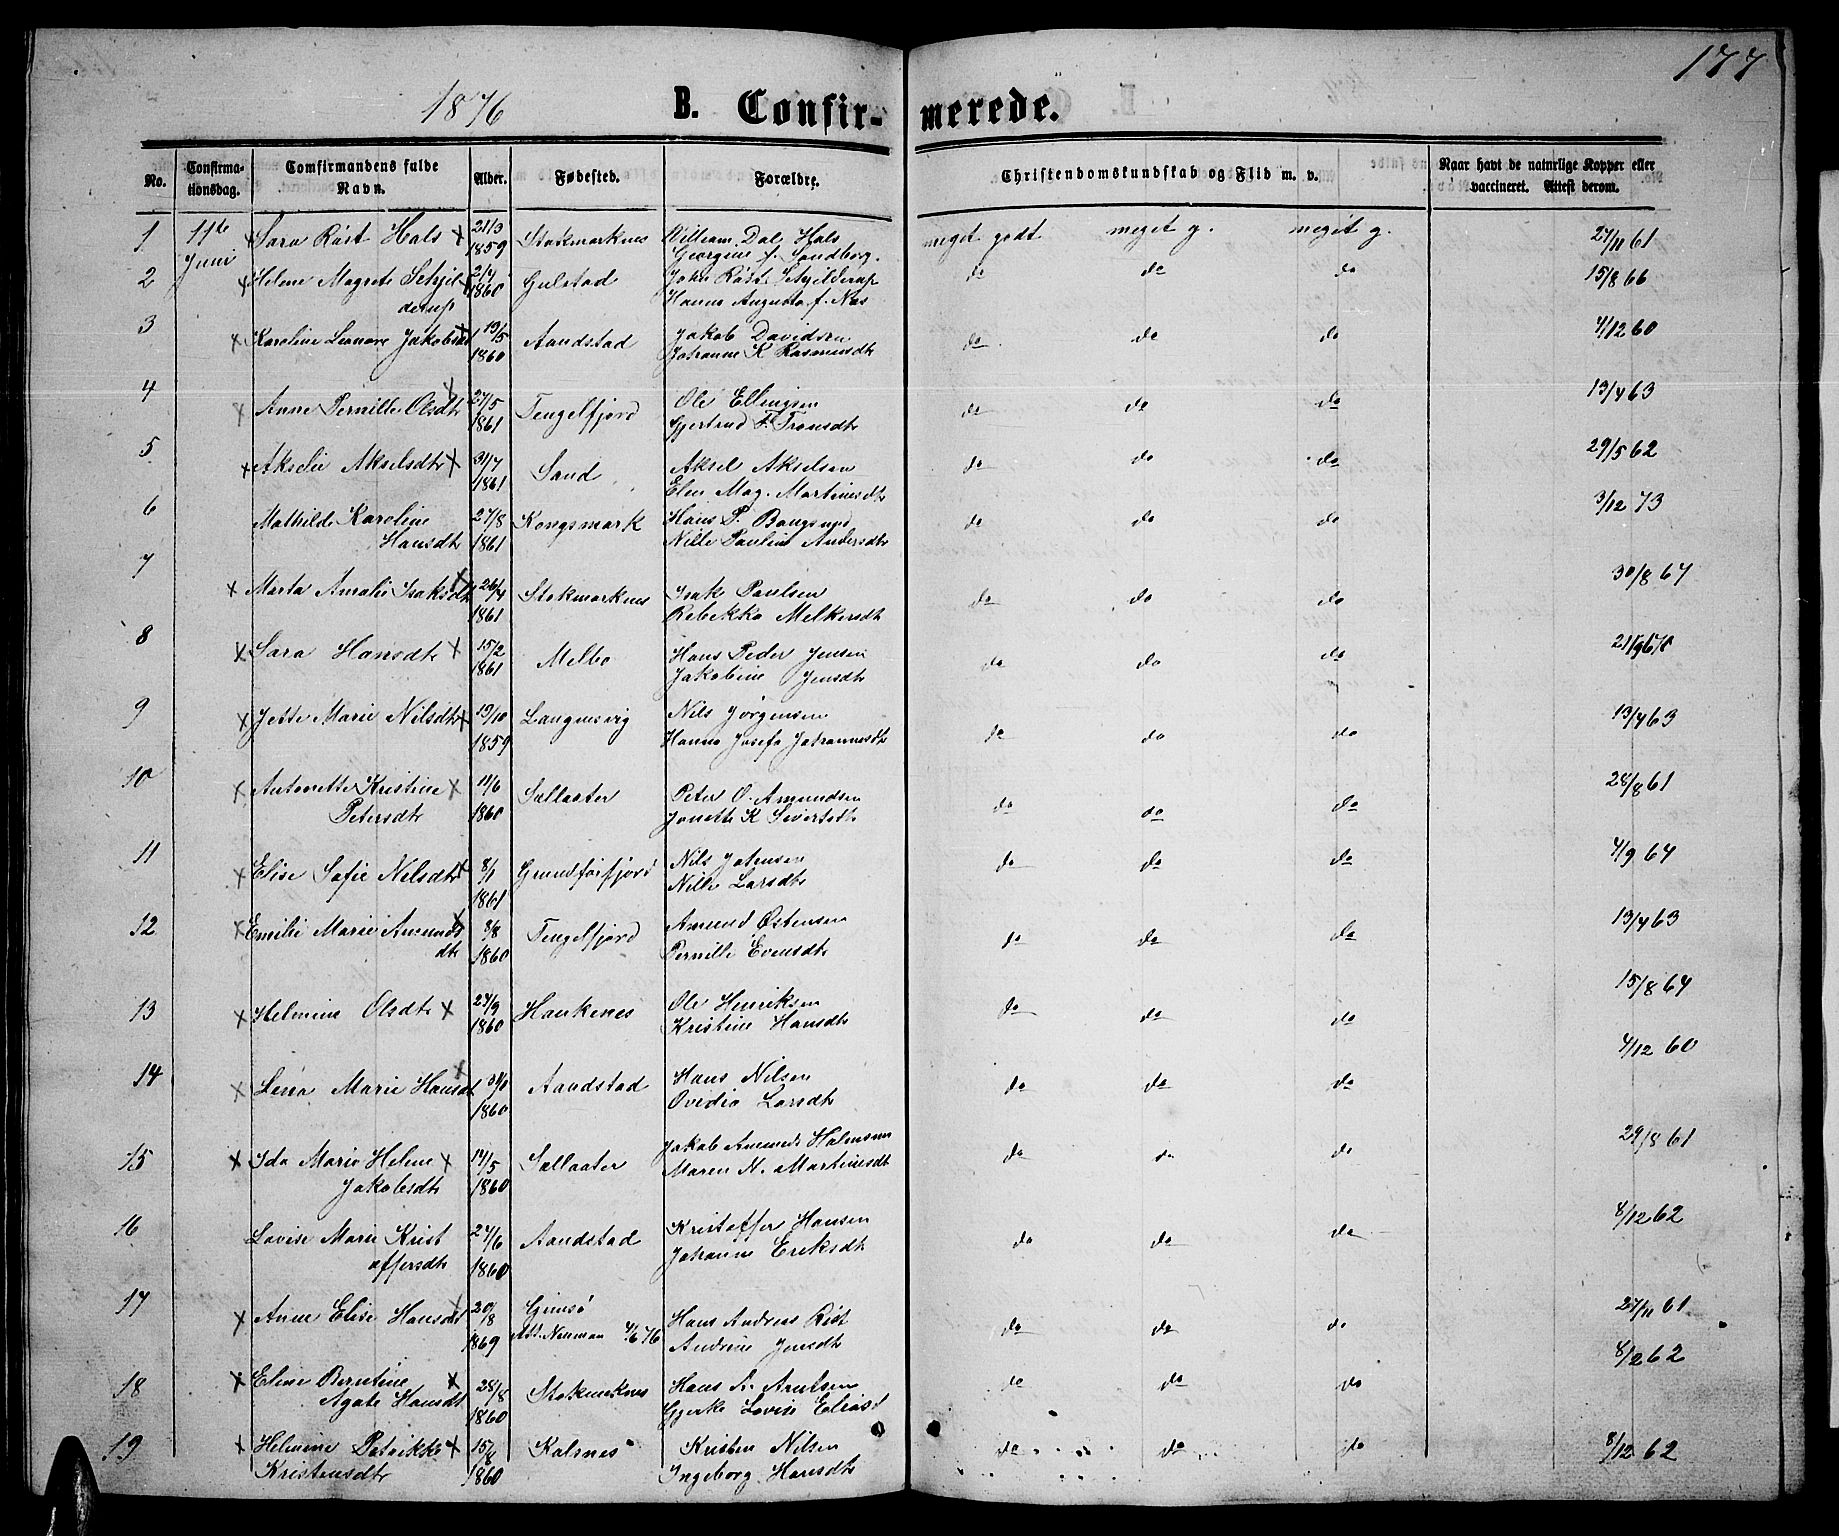 177
1876 B. Confir- merede.
No. Confirma- tionsdag. Comfirmandens fulde Navn. Alder. Fødested. Forældre. Christendomskundskab og Flid m. v. Naar havt de naturlige Kopper eller vaccineret. Attest derom.
1 11te Sara Röst Hals x 21/3 Stokmarknes William Dal Hals meget godt meget g. meget g. 27/11 61
Juni 1859 Georgine f. Sandberg.
2 x Helene Magrete Schjel- 2/7 Gulstad John Röst Schjelderup do do do 15/8 66
derup 1860 Hanna Augusta f. Næs
3 x Karoline Leonore Jakobsd x 19/5 Aandstad Jakob Davidsen do do do 4/12 60
1860 Johanne K Rasmusdt
4 x Anne Pernille Olsdt x 27/5 Tengelfjord Ole Ellingsen do do do 13/4 63
1861 Gjertrud F. Tronsdt
5 x Akselie Akselsdt x 31/7 Sand Aksel Akselsen do do do 29/5 62
1861 Elen Mag. Martinusdt
6 Mathilde Karoline 27/8 Kongsmark Hans P. Bangsund do do do 3/12 73
Hansdt 1861 Nille Pauline Andersdt
7 x Marta Amalie Isaksdt x 26/4 Stokmarknes Isak Paulsen do do do 30/8 67
1861 Rebekka Melkersdt
8 x Sara Hansdt x 15/2 Melbo Hans Peder Jensen do do do
1861 Jakobine Jensdt
9 x Jette Marie Nilsdt x 19/10 Langensvig Nils Jörgensen do do do 13/4 63
1859 Hanna Josefa Johannesdt
10 x Antonette Kristine x 11/6 Sallaater Peter O. Amundsen do do do 28/8 61
Petersdt 1860 Jonette K Sivertsdt
11 x Elise Sofie Nilsdt x 8/1 Grundförfjord Nils Johnsen do do do 4/9 64
1861 Nille Larsdt
12 x Emilie Marie Amunds x 8/8 Tengelfjord Amund Østensen do do do 13/4 63
dt 1860 Pernille Evensdt
13 x Helmine Olsdt x 27/9 Haukenes Ole Henriksen do do do 15/8 64
1860 Kristine Hansdt
14 x Lena Marie Hansdt x Aandstad Hans Nilsen do do do 4/12 60
1860 Ovedia Larsdt
15 x Ida Marie Helene x 14/5 Sallaater Jakob Amunds Halmsen do do do 29/8 61
Jakobsdt 1860 Maren N. Martinusdt
16 Lovise Marie Krist 27/6 Aandstad Kristoffer Hansen do do do 8/12 62
offersdt 1860 Johanne Eriksdt
17 x Anne Elise Hansdt x 20/8 Gimsö Hans Andreas Röst do do do 27/11 61
1869 Att. Neuman 4/6 76 Andrine Jensdt
18 x Eline Berntine x 28/8 Stokmarknes Hans A. Arntsen do do do 8/2 62
Agate Hansdt 1860 Gjerke Lovise Eliasd
19 x Helmine Patrikke x 15/8 Kalsnes Kristen Nilsen do do do 8/12 62
Kristensdt 1860 Ingeborg Hansdt